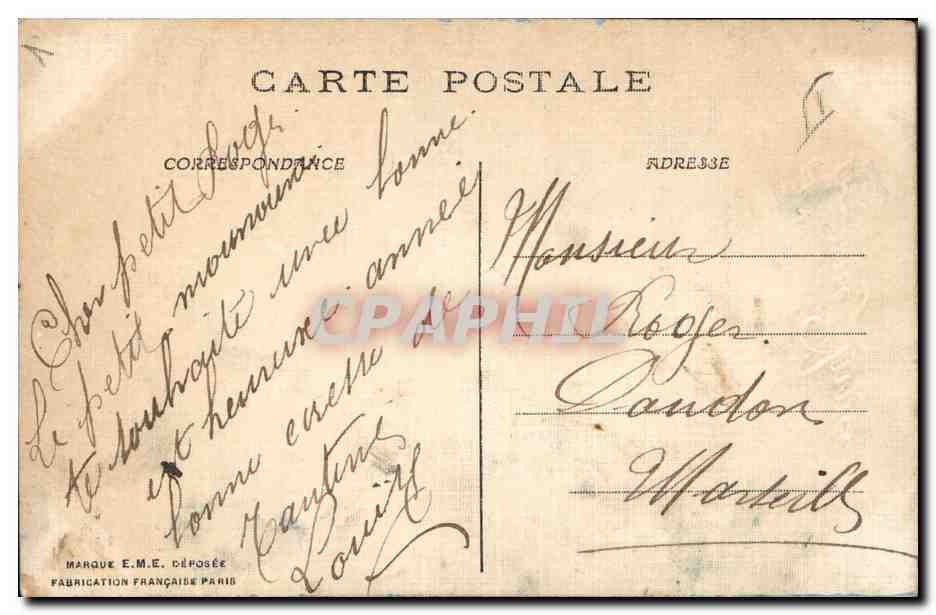 CARTE POSTALE
CORRESPONDANCE
ADRESSE
Cher petit Roger
Le petit mounouni
te souhaite une bonne
et heureuse année
bonne caresse de
Tantine
Louise
Monsieur
Roger
Daudon
Marseille
CPAPHIL
MARQUE E.M.E. DÉPOSÉE
FABRICATION FRANÇAISE PARIS